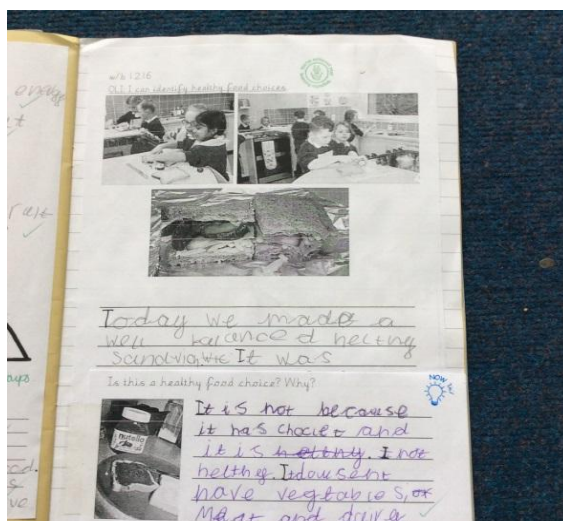 w/b 12/6
OLI I can identify healthy food choices
Today we made a
well balanced helthy
It was
Is this a healthy food choice? Why?
NOW TRY
It is not because
it has choclet and
it is helthy. I not
helthy. It dousent
have vegtables, or
Meat and dairy
nutella